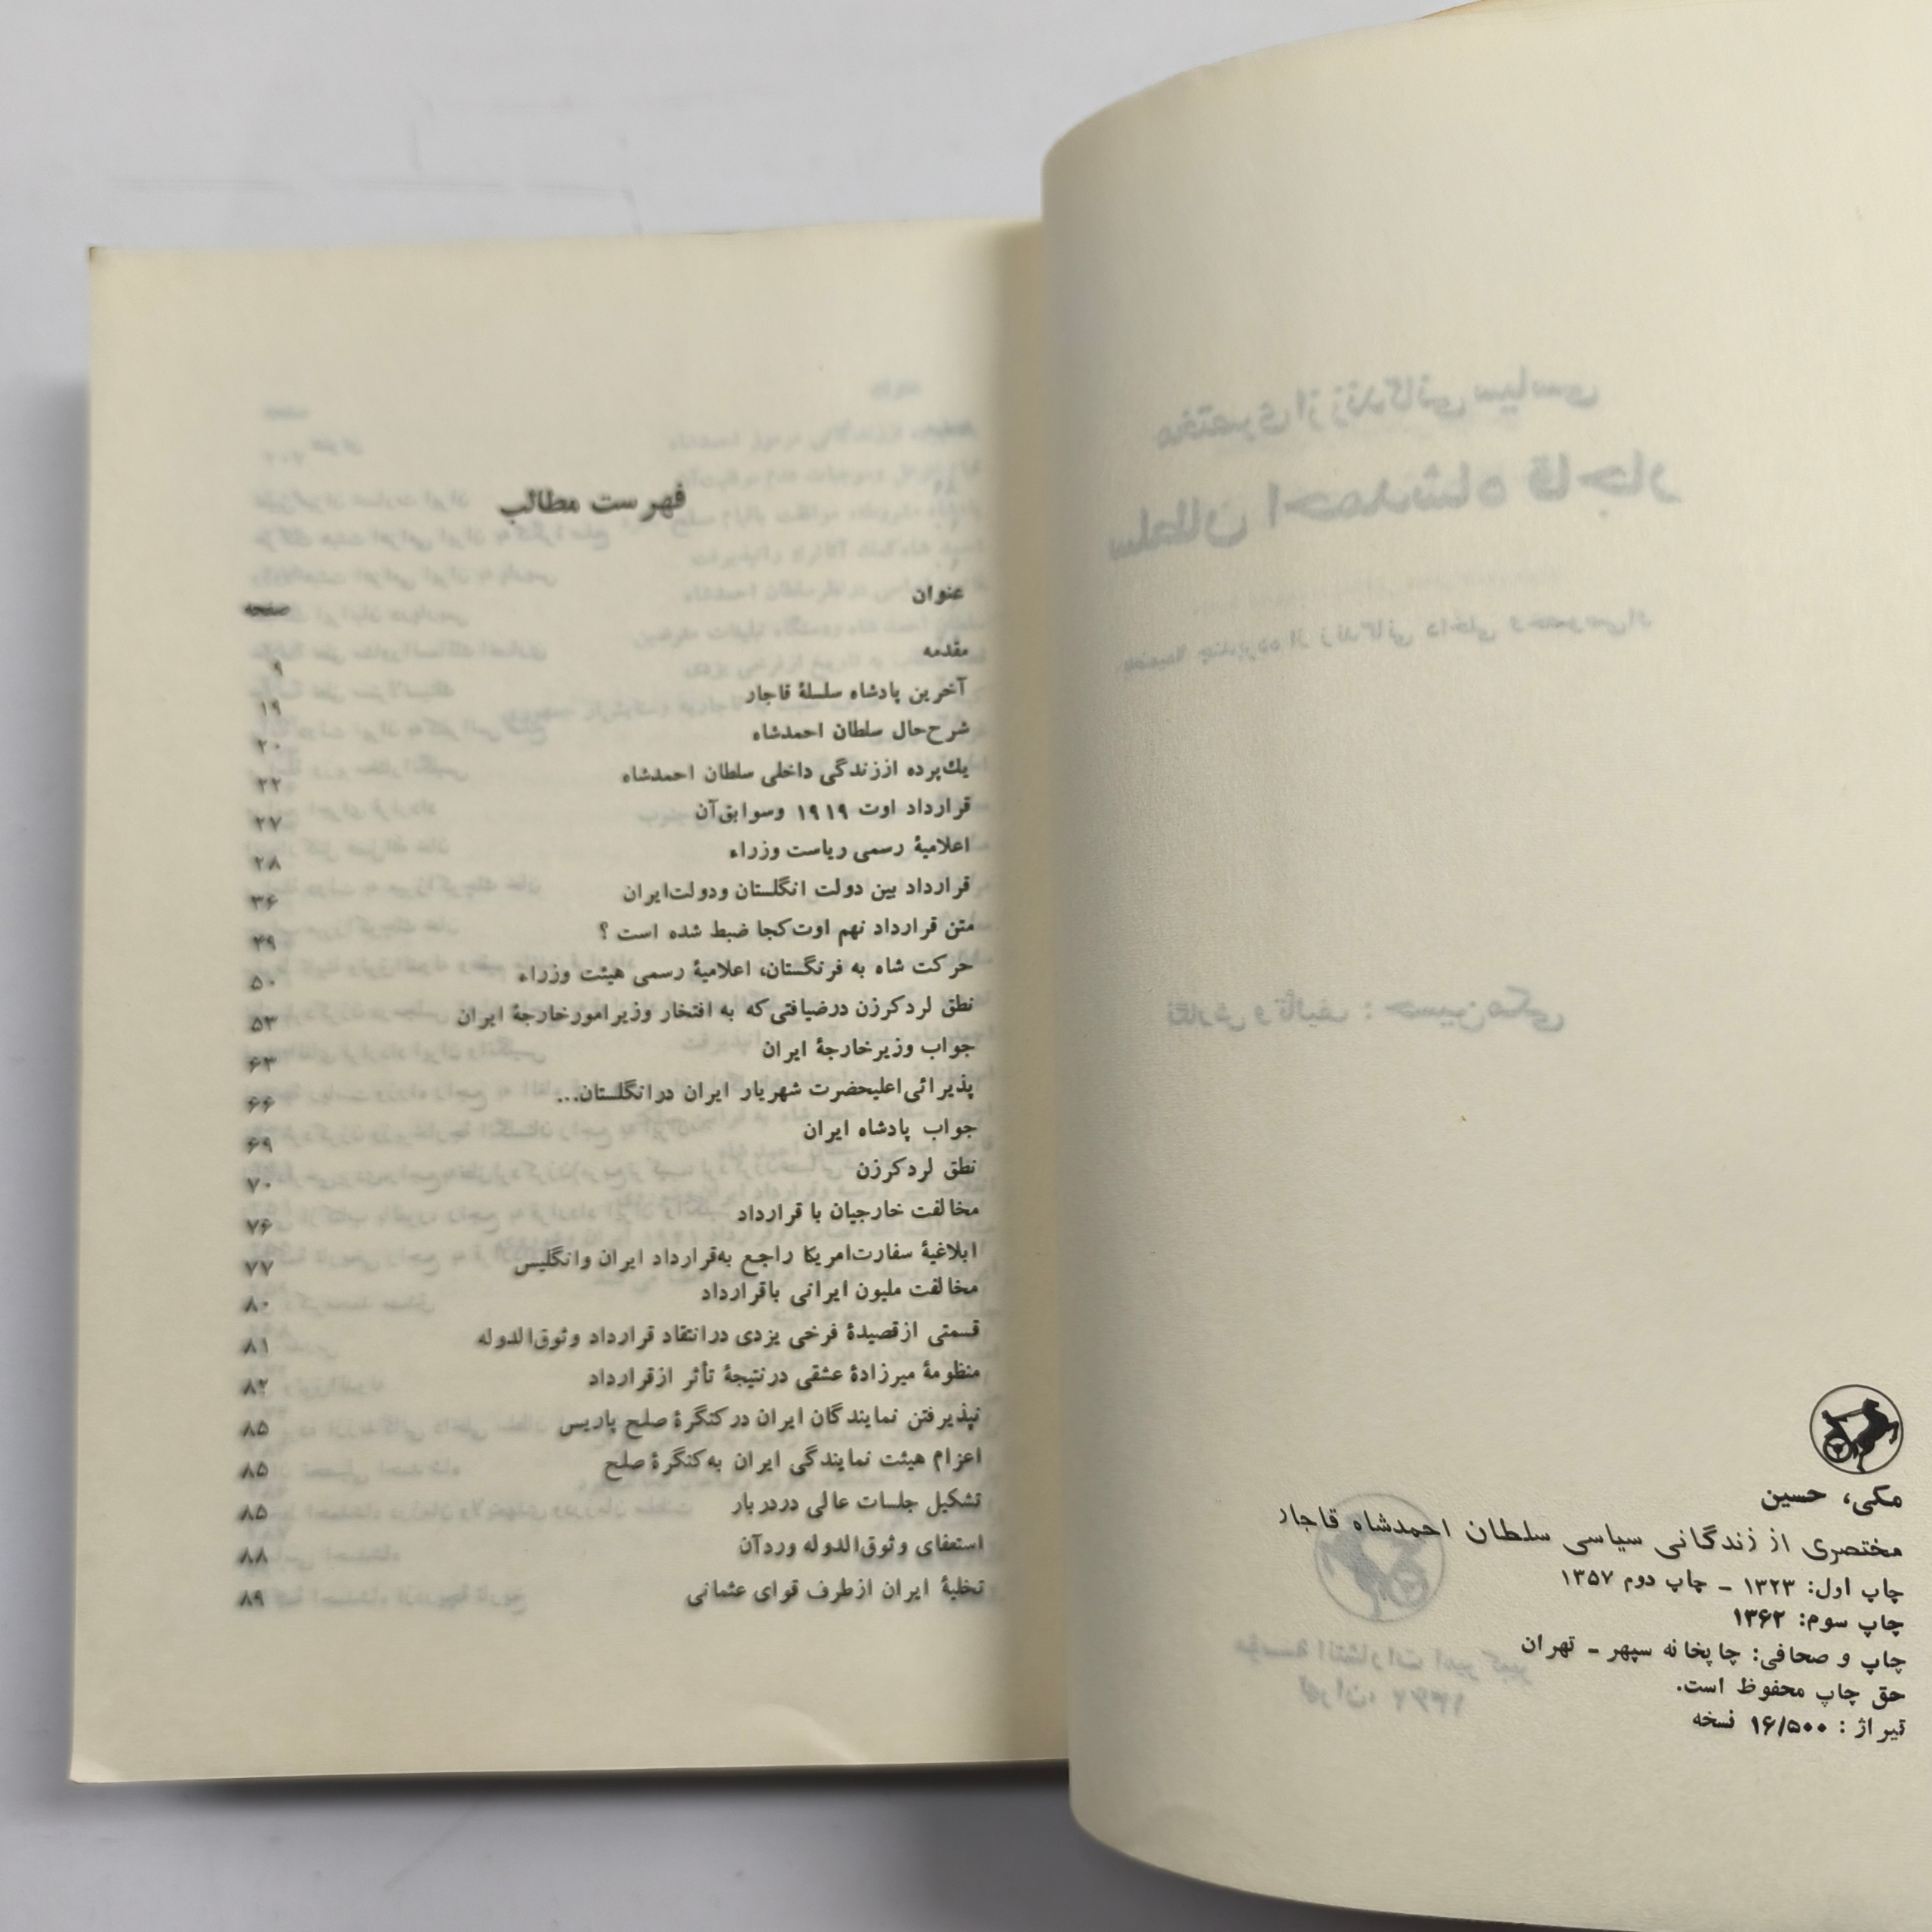 مکی، حسین
مختصری از زندگانی سیاسی سلطان احمدشاه قاجار
چاپ اول: ۱۳۲۳ - چاپ دوم ۱۳۵۷
چاپ سوم: ۱۳۶۲
چاپ و صحافی: چاپخانه سپهر - تهران
حق چاپ محفوظ است.
تیراژ: ۱۶/۵۰۰ نسخه
فهرست مطالب
عنوان صفحه
مقدمه ۹
آخرین پادشاه سلسلهٔ قاجار ۱۹
شرح‌حال سلطان احمدشاه ۲۰
یك‌پرده اززندگی داخلی سلطان احمدشاه ۲۲
قرارداد اوت ۱۹۱۹ وسوابق‌آن ۲۷
اعلامیهٔ رسمی ریاست وزراء ۲۸
قرارداد بین دولت انگلستان ودولت‌ایران ۳۶
متن قرارداد نهم اوت‌کجا ضبط شده است ؟ ۴۹
حرکت شاه به فرنگستان، اعلامیهٔ رسمی هیئت وزراء ۵۰
نطق لردکرزن درضیافتی‌که به افتخار وزیرامورخارجهٔ ایران ۵۳
جواب وزیرخارجهٔ ایران ۶۳
پذیرائی‌اعلیحضرت شهریار ایران درانگلستان... ۶۶
جواب پادشاه ایران ۶۹
نطق لردکرزن ۷۰
مخالفت خارجیان با قرارداد ۷۶
ابلاغیهٔ سفارت‌امریکا راجع به‌قرارداد ایران وانگلیس ۷۷
مخالفت ملیون ایرانی باقرارداد ۸۰
قسمتی ازقصیدهٔ فرخی یزدی درانتقاد قرارداد وثوق‌الدوله ۸۱
منظومهٔ میرزادهٔ عشقی درنتیجهٔ تأثر ازقرارداد ۸۲
نپذیرفتن نمایندگان ایران درکنگرهٔ صلح پاریس ۸۵
اعزام هیئت نمایندگی ایران به‌کنگرهٔ صلح ۸۵
تشکیل جلسات عالی دردربار ۸۵
استعفای وثوق‌الدوله وردآن ۸۸
تخلیهٔ ایران ازطرف قوای عثمانی ۸۹